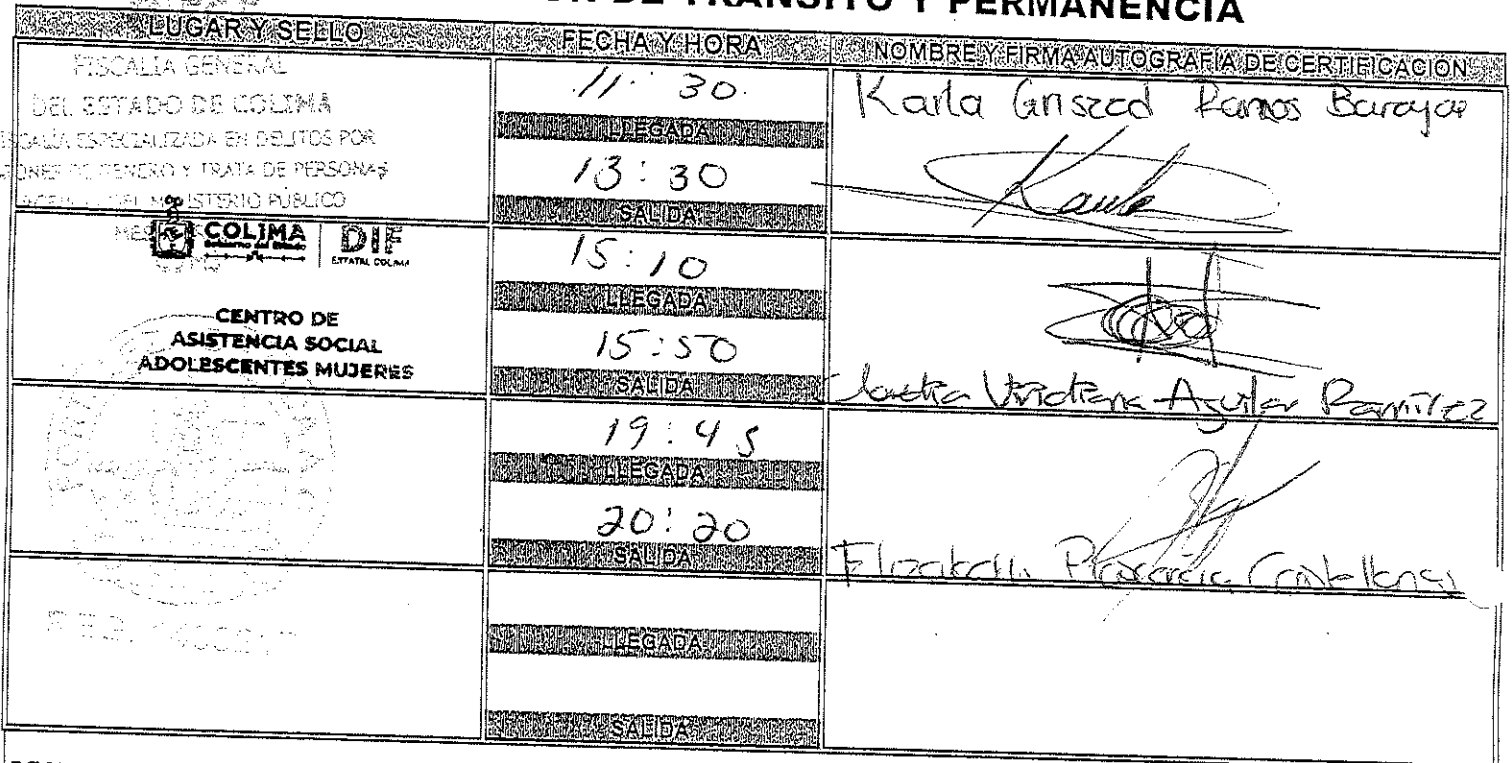 DE TRÁNSITO Y PERMANENCIA
LUGAR Y SELLO
FECHA Y HORA
NOMBRE Y FIRMA AUTOGRAFIA DE CERTIFICACIÓN
FISCALÍA GENERAL
DEL ESTADO DE COLIMA
ESPECIALIZADA EN DELITOS POR
DE GENERO Y TRATA DE PERSONAS
PÚBLICO
11:30
LLEGADA
13:30
SALIDA
Karla Griszed Ramos Barajas
Karla
COLIMA
Gobierno del Estado
DIF
ESTATAL COLIMA
CENTRO DE
ASISTENCIA SOCIAL
ADOLESCENTES MUJERES
15:10
LLEGADA
15:50
SALIDA
Claudia Viridiana Aguilar Ramírez
19:45
LLEGADA
20:20
SALIDA
LLEGADA
SALIDA